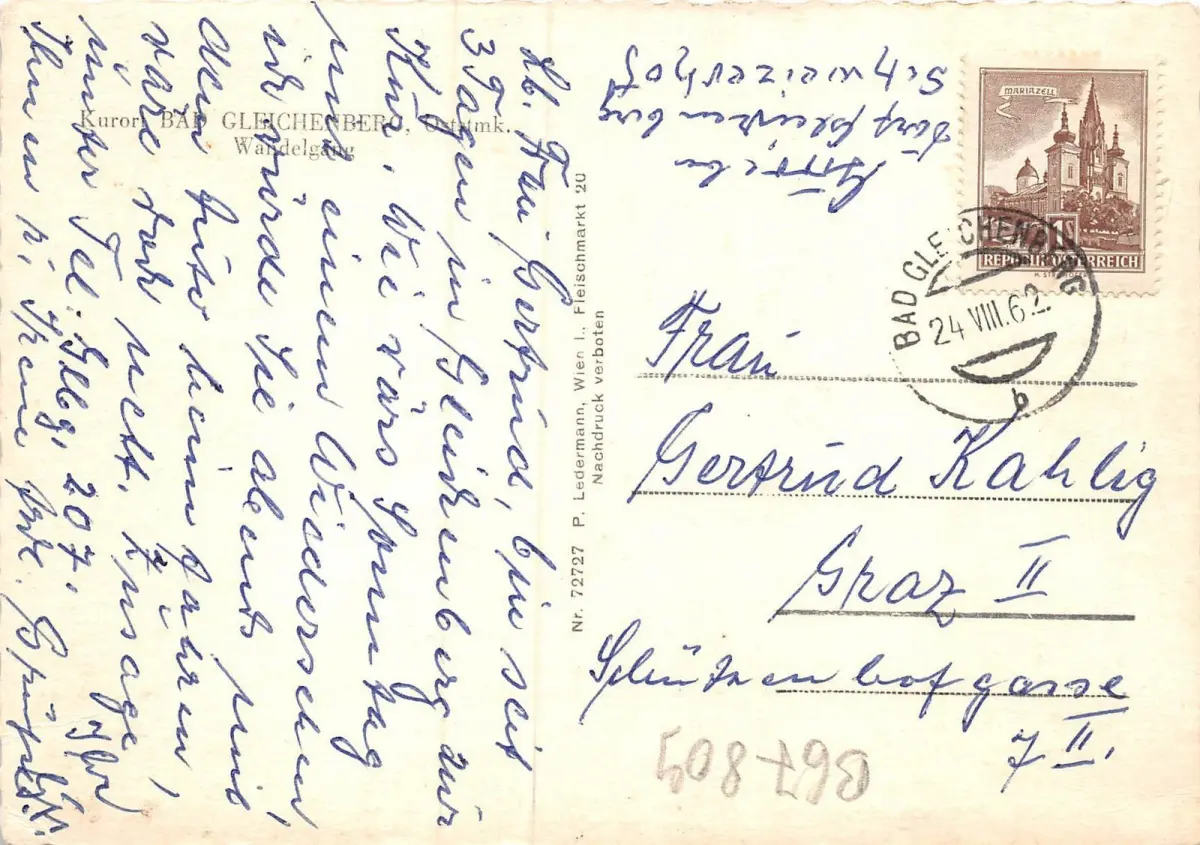 Kurort BAD GLEICHENBERG, Oststmk.
Wandelgang
Lb. Frau Gertrud, bin seit
3 Tagen in Gleichenberg zur
Kur. Wie wärs Sonntag
mit einem Wiedersehen,
ich würde Sie abends mit
dem Auto heim
wäre doch nett. Zusage
unter Tel: Glbg. 207.
Ihnen u. Ihrem
Nr. 72727 P. Ledermann, Wien I., Fleischmarkt 20
Nachdruck verboten
Dorf Gleichenberg
Schweizerhof
MARIAZELL
1S
REPUBLIK ÖSTERREICH
BAD GLEICHENBERG
24.VIII.62
b
Frau
Gertrud Kahlig
Graz II
Schützenhofgasse
7 II.
367 809